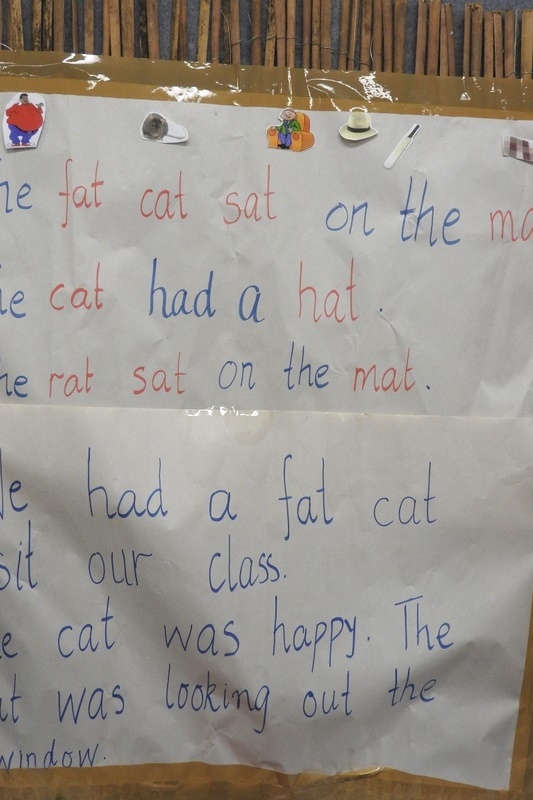 he fat cat sat on the ma
e cat had a hat.
he rat sat on the mat.
e had a fat cat
sit our class.
e cat was happy. The
at was looking out the
window.